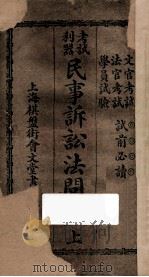 文官考試
法官考試
學員試驗
試前必讀
考試
利器
民事訴訟法問
上
上海棋盤街會文堂書
www.mtoou.info